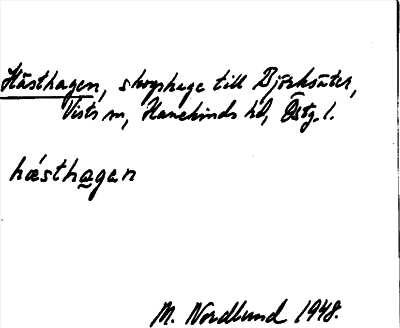 Hästhagen, skogshage till Björksäter,
Vists sn, Hanekinds hd, Östg. l.
hǽsthagen
M. Nordlund 1948.